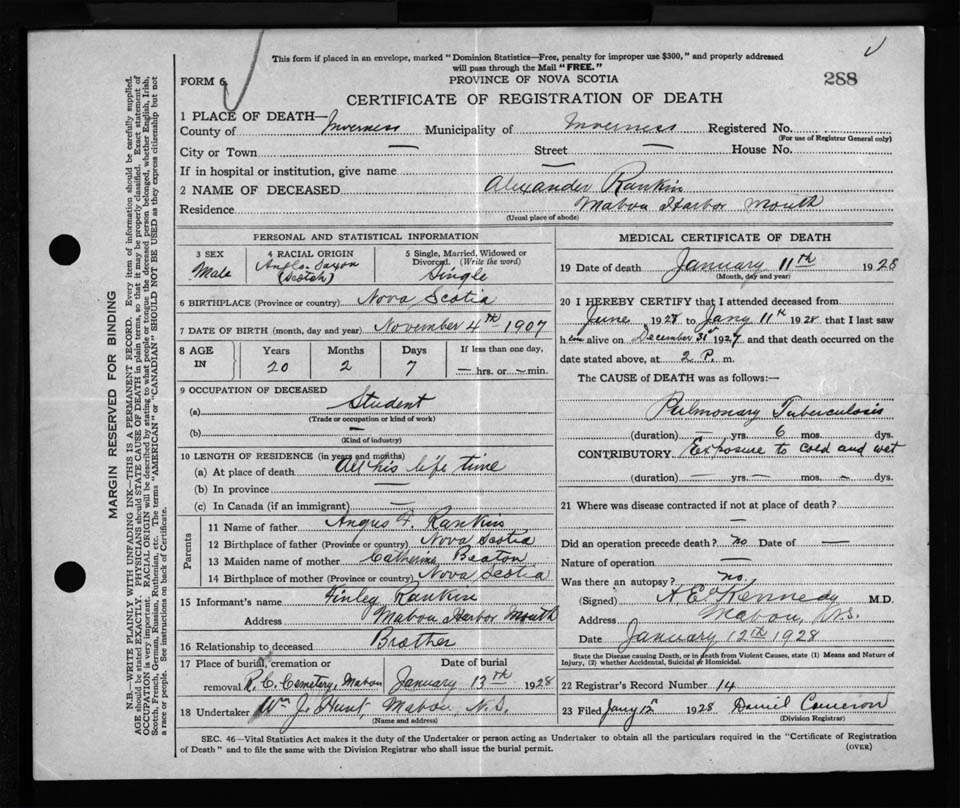 This form if placed in an envelope, marked "Dominion Statistics—Free, penalty for improper use $300," and properly addressed
will pass through the Mail "FREE."
FORM 6
PROVINCE OF NOVA SCOTIA
288
CERTIFICATE OF REGISTRATION OF DEATH
1 PLACE OF DEATH—
County of Inverness Municipality of Inverness Registered No.
(For use of Registrar General only)
City or Town — Street — House No.
If in hospital or institution, give name —
2 NAME OF DECEASED Alexander Rankin
Residence Mabou Harbor Mouth
(Usual place of abode)
PERSONAL AND STATISTICAL INFORMATION
3 SEX
Male
4 RACIAL ORIGIN
Anglo-Saxon
(Scotch)
5 Single, Married, Widowed or
Divorced. (Write the word)
Single
6 BIRTHPLACE (Province or country) Nova Scotia
7 DATE OF BIRTH (month, day and year) November 4th 1907
8 AGE IN
Years Months Days If less than one day,
20 2 7 — hrs. or — min.
9 OCCUPATION OF DECEASED
(a) Student
(Trade or occupation or kind of work)
(b) —
(Kind of industry)
10 LENGTH OF RESIDENCE (in years and months)
(a) At place of death All his life time
(b) In province —
(c) In Canada (if an immigrant) —
Parents
11 Name of father Angus F. Rankin
12 Birthplace of father (Province or country) Nova Scotia
13 Maiden name of mother Catherine Beaton
14 Birthplace of mother (Province or country) Nova Scotia
15 Informant's name Finley Rankin
Address Mabou Harbor Mouth
16 Relationship to deceased Brother
17 Place of burial, cremation or Date of burial
removal R. C. Cemetery, Mabou January 13th 1928
18 Undertaker Wm J. Hunt, Mabou, N.S.
(Name and address)
MEDICAL CERTIFICATE OF DEATH
19 Date of death January 11th 1928
(Month, day and year)
20 I HEREBY CERTIFY that I attended deceased from
June 1928 to Jany 11th 1928 that I last saw
him alive on December 31st 1927 and that death occurred on the
date stated above, at 2 P. m.
The CAUSE of DEATH was as follows:—
Pulmonary Tuberculosis
(duration) — yrs. 6 mos. dys.
CONTRIBUTORY. Exposure to cold and wet
(duration) — yrs. — mos. — dys.
21 Where was disease contracted if not at place of death?
—
Did an operation precede death? no Date of —
Nature of operation —
Was there an autopsy? no.
(Signed) A. E. Kennedy M.D.
Address Mabou, N.S.
Date January 12th 1928
State the Disease causing Death, or in death from Violent Causes, state (1) Means and Nature of
Injury, (2) whether Accidental, Suicidal or Homicidal.
22 Registrar's Record Number 14
23 Filed Jany 12th 1928 Daniel Cameron
(Division Registrar)
SEC. 46—Vital Statistics Act makes it the duty of the Undertaker or person acting as Undertaker to obtain all the particulars required in the "Certificate of Registration
of Death" and to file the same with the Division Registrar who shall issue the burial permit. (OVER)
MARGIN RESERVED FOR BINDING
N.B.—WRITE PLAINLY WITH UNFADING INK—THIS IS A PERMANENT RECORD. Every item of information should be carefully supplied.
AGE should be stated EXACTLY. PHYSICIANS should STATE CAUSE OF DEATH in plain terms, so that it may be properly classified. Exact statement of
OCCUPATION is very important. RACIAL ORIGIN will be described by stating to what people or tongue the deceased person belonged, whether English, Irish,
Scotch, French, German, Russian, Ruthenian, etc. The terms "AMERICAN" or "CANADIAN" SHOULD NOT BE USED as they express citizenship but not
a race or people. See instructions on back of Certificate.